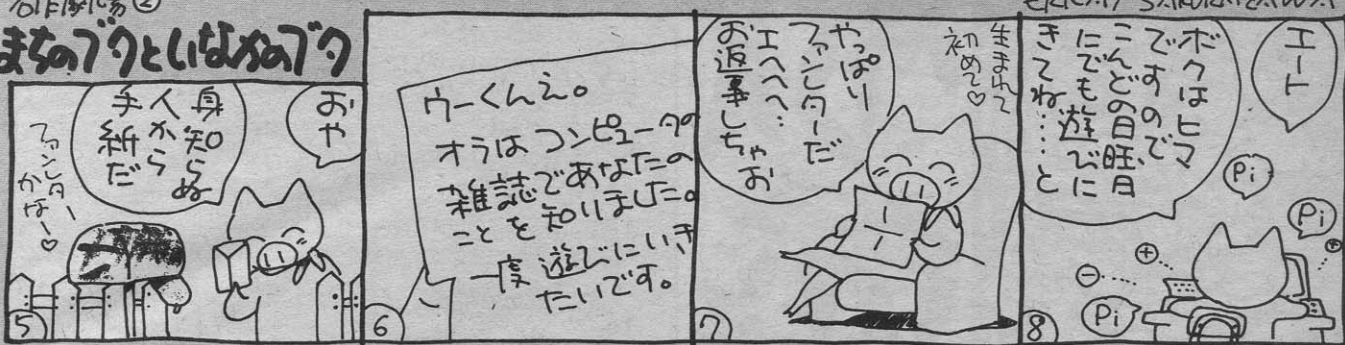 まちのブタといなかのブタ
おや
身知らぬ
人から
手紙だ
ファンレター
かな〜♡
5
ウーくんえ。
オラはコンピュータの
雑誌であなたの
ことを知りました。
一度遊びにいき
たいです。
6
生まれて
初めて♡
やっぱり
ファンレターだ
エへへへ…
お返事しちゃお
7
エート
ボクはヒマ
ですので、
こんどの日旺日
にでも遊びに
きてね……と
Pi
Pi
Pi
8